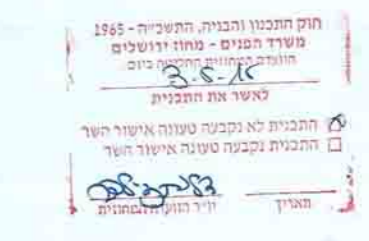 חוק התכנון והבניה, התשכ״ה - 1965
משרד הפנים - מחוז ירושלים
הוועדה המחוזית החליטה ביום
לאשר את התכנית
התכנית לא נקבעה טעונה אישור השר
התכנית נקבעה טעונה אישור השר
תאריך יו״ר הוועדה המחוזית